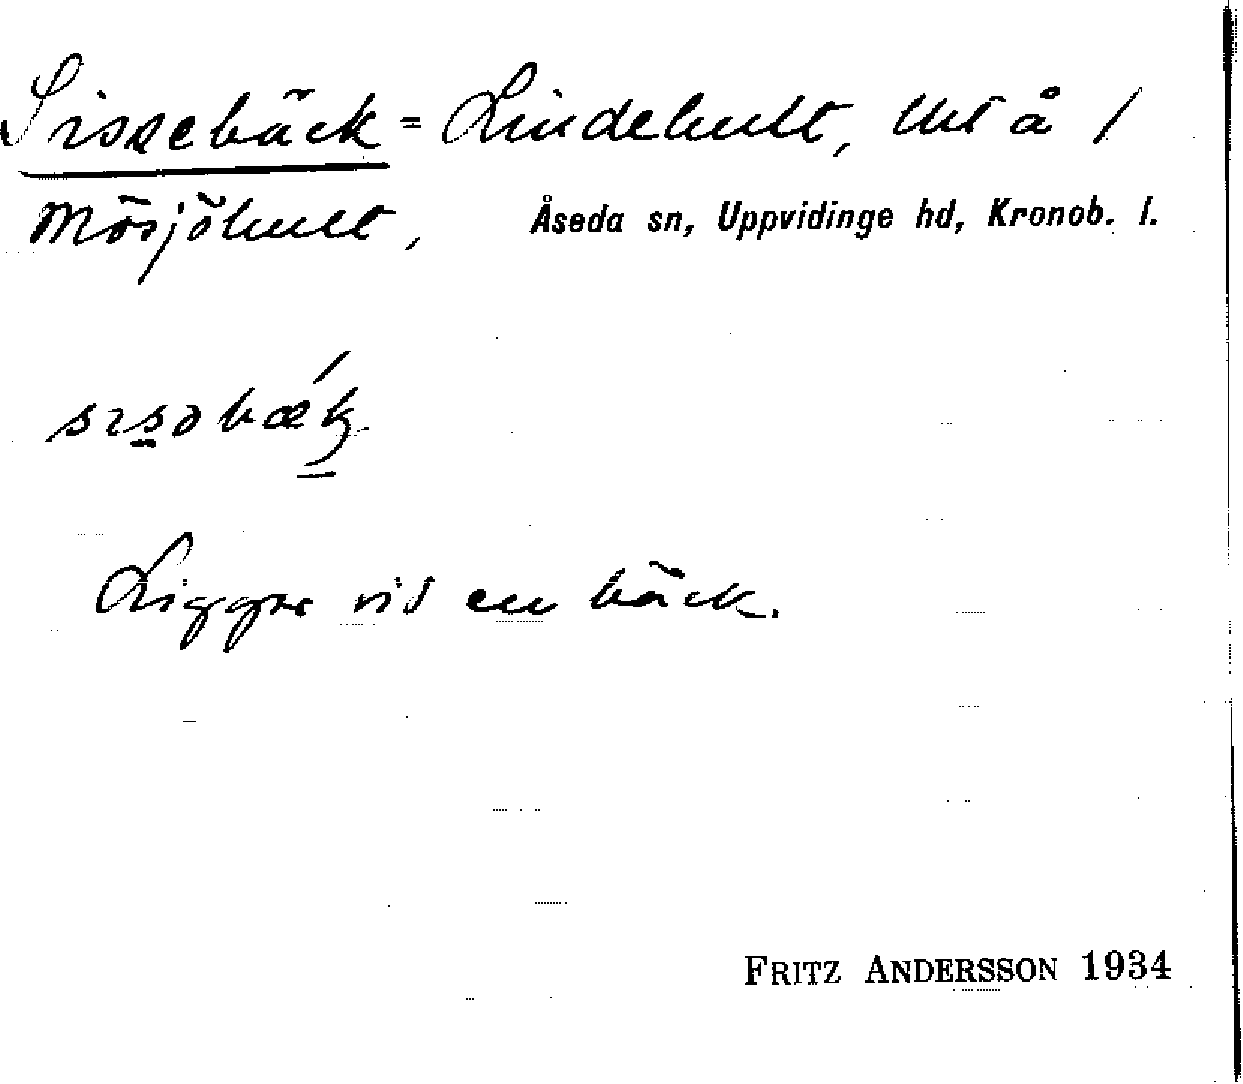 Sissebäck = Lindehult, lht å /
Mörsjöhult, Åseda sn, Uppvidinge hd, Kronob. l.
Ligger vid en bäck.
FRITZ ANDERSSON 1934